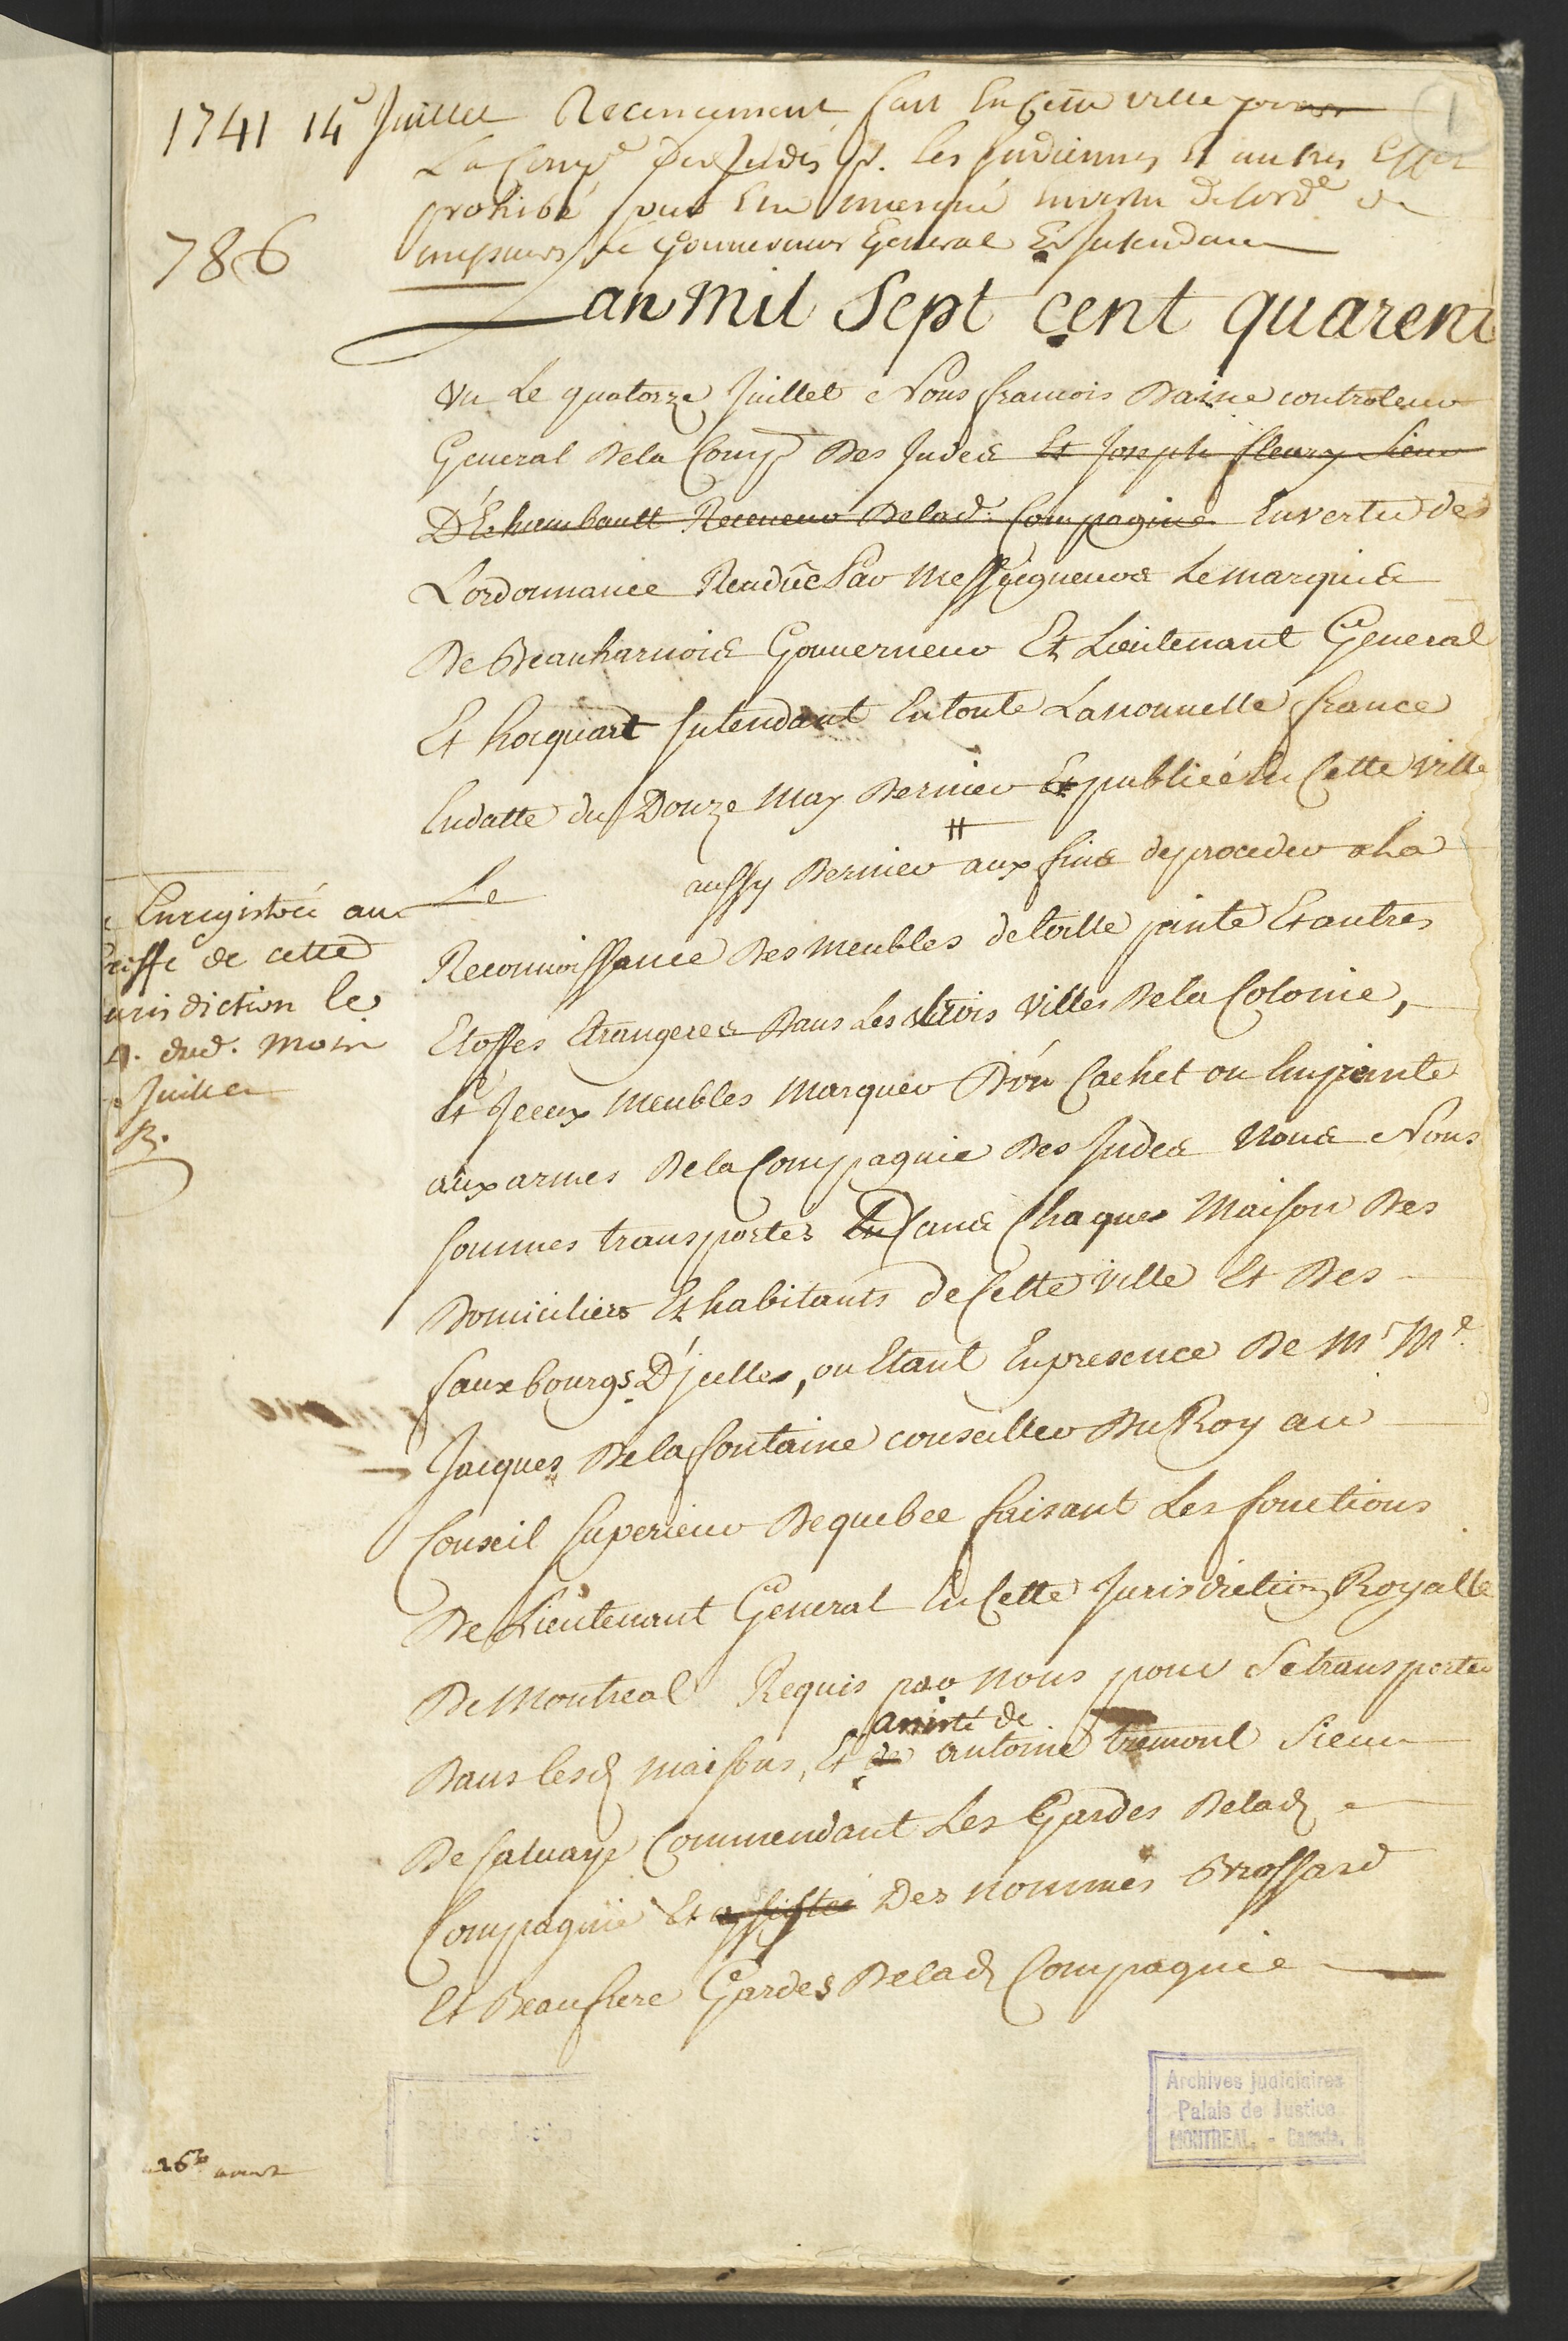 1
1741 14e Juillet Recencement fait En Cette ville pour
La Comp.e des Indes p. les Indiennes Et autres Effets
prohibé pour Etre marqué En vertu de lord.e de
786
messieurs le Gouverneur General Et Intendant
Lan mil Sept cent quarent
vn Le quatorze Juillet Nous francois Daine controleur
General Dela Comp Des Indes Et Joseph fleury Sieur
D'Echambault Receueur Delad. Compagnie Envertu de
L'ordonnance Rendüe Par Messeigneurs Le marquis
De Beauharnois Gouuerneur Et Lieutenant General
Et hocquart Intendant En toute La nouuelle france
En datte du Douze May Dernier Et publiéé En Cette ville
Le aussy Dernier aux fins de proceder a La
Reconnoissance Des Meubles de toille peinte Et autres
Etoffes Etrangeres Dans Les trois Villes Dela Colonie,
Et Jceux Meubles Marquer D'ún Cachet ou Empreinte
aux armes Dela Compagnie Des Indes Nous Nous
sommes transportes En dans Chaques Maison Des
Domiciliers Et habitants de Cette Ville Et Des
fauxbourgs D'jcelles, ou Etant En presence De Mr Me
Jacques De lafontaine conseiller Du Roy au
Conseil Superieur De quebec faisant Les fonctions
De Lieutenant General En Cette Jurisdiction Royalle
De Montreal Requis par nous pour Se transporter
assisté de
Dans lesd maisons, Et de antoine tremont Sieur
De Saluaye Commendant Les Gardes Delad
Compagnie Et assistéé Des nommés Brossard
Et Beaufrere Gardes Delad Compagnie
Enregistréé au
Greffe de cette
jurisdiction le
dud. Mois
Juillet
R.
26e
Archives judiciaires
Palais de Justice
MONTREAL. - Canada.